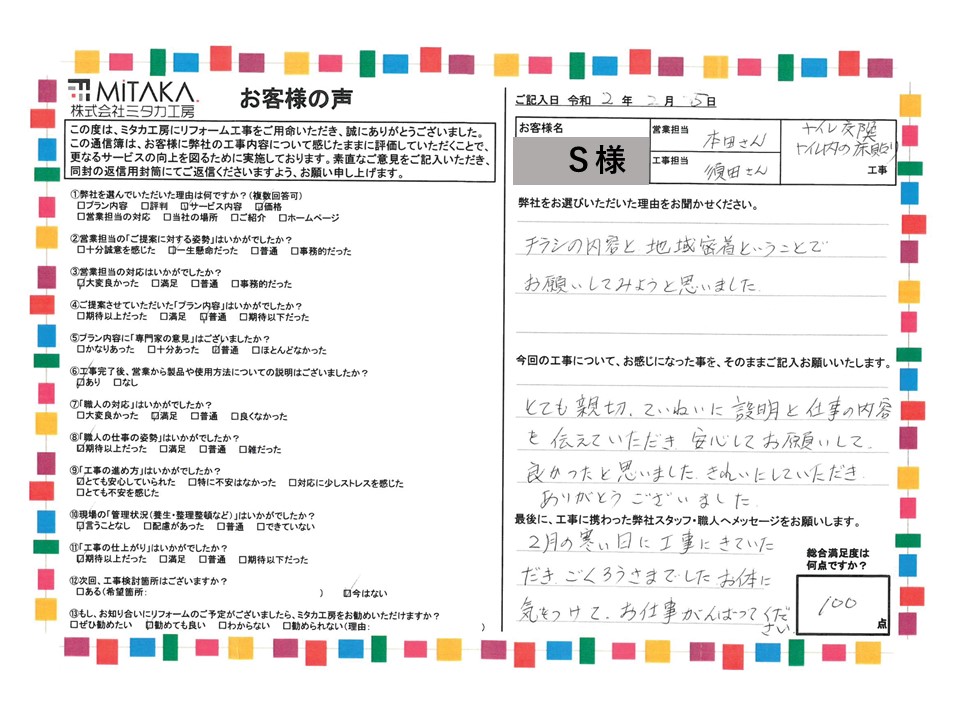 MiTAKA
株式会社ミタカ工房
お客様の声
この度は、ミタカ工房にリフォーム工事をご用命いただき、誠にありがとうございました。
この通信簿は、お客様に弊社の工事内容について感じたままに評価していただくことで、
更なるサービスの向上を図るために実施しております。素直なご意見をご記入いただき、
同封の返信用封筒にてご返信くださいますよう、お願い申し上げます。
①弊社を選んでいただいた理由は何ですか?(複数回答可)
□プラン内容 □評判 ☑サービス内容 ☑価格
□営業担当の対応 □当社の場所 □ご紹介 □ホームページ
②営業担当の「ご提案に対する姿勢」はいかがでしたか?
□十分誠意を感じた ☑一生懸命だった □普通 □事務的だった
③営業担当の対応はいかがでしたか?
☑大変良かった □満足 □普通 □事務的だった
④ご提案させていただいた「プラン内容」はいかがでしたか?
□期待以上だった □満足 ☑普通 □期待以下だった
⑤プラン内容に「専門家の意見」はございましたか?
□かなりあった □十分あった ☑普通 □ほとんどなかった
⑥工事完了後、営業から製品や使用方法についての説明はございましたか?
☑あり □なし
⑦「職人の対応」はいかがでしたか?
□大変良かった ☑満足 □普通 □良くなかった
⑧「職人の仕事の姿勢」はいかがでしたか?
☑期待以上だった □満足 □普通 □雑だった
⑨「工事の進め方」はいかがでしたか?
☑とても安心していられた □特に不安はなかった □対応に少しストレスを感じた
□とても不安を感じた
⑩現場の「管理状況(養生・整理整頓など)」はいかがでしたか?
☑言うことなし □配慮があった □普通 □できていない
⑪「工事の仕上がり」はいかがでしたか?
☑期待以上だった □満足 □普通 □期待以下だった
⑫次回、工事検討箇所はございますか?
□ある(希望箇所: ) ☑今はない
⑬もし、お知り合いにリフォームのご予定がございましたら、ミタカ工房をお勧めいただけますか?
□ぜひ勧めたい ☑勧めても良い □わからない □勧められない(理由: )
ご記入日 令和 2 年 2 月 5日
お客様名
S様
営業担当
本田さん
工事担当
須田さん
トイレ交換
トイレ内の床貼り
工事
弊社をお選びいただいた理由をお聞かせください。
チラシの内容と地域密着ということで
お願いしてみようと思いました
今回の工事について、お感じになった事を、そのままご記入お願いいたします。
とても親切、ていねいに説明と仕事の内容
を伝えていただき、安心してお願いして
良かったと思いました きれいにしていただき
ありがとうございました
最後に、工事に携わった弊社スタッフ・職人へメッセージをお願いします。
2月の寒い日に工事にきていた
だき ごくろうさまでした お体に
気をつけて、お仕事がんばってくだ
さい
総合満足度は
何点ですか?
100
点